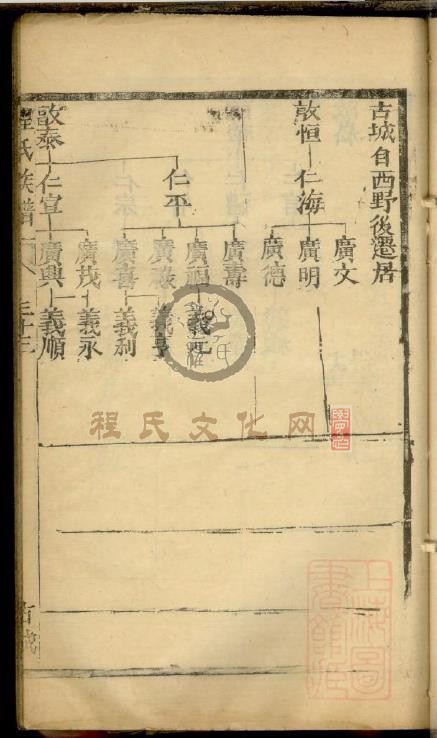 古城自西野後遷居
敦恒 仁海
廣文
廣明
廣德
敦泰
仁平
廣壽
廣福 義
廣祿 義亨
廣喜 義利
仁宣
廣茂 義永
廣興 義順
程氏族譜
三十三
古城
程氏文化网
上海圖書館藏